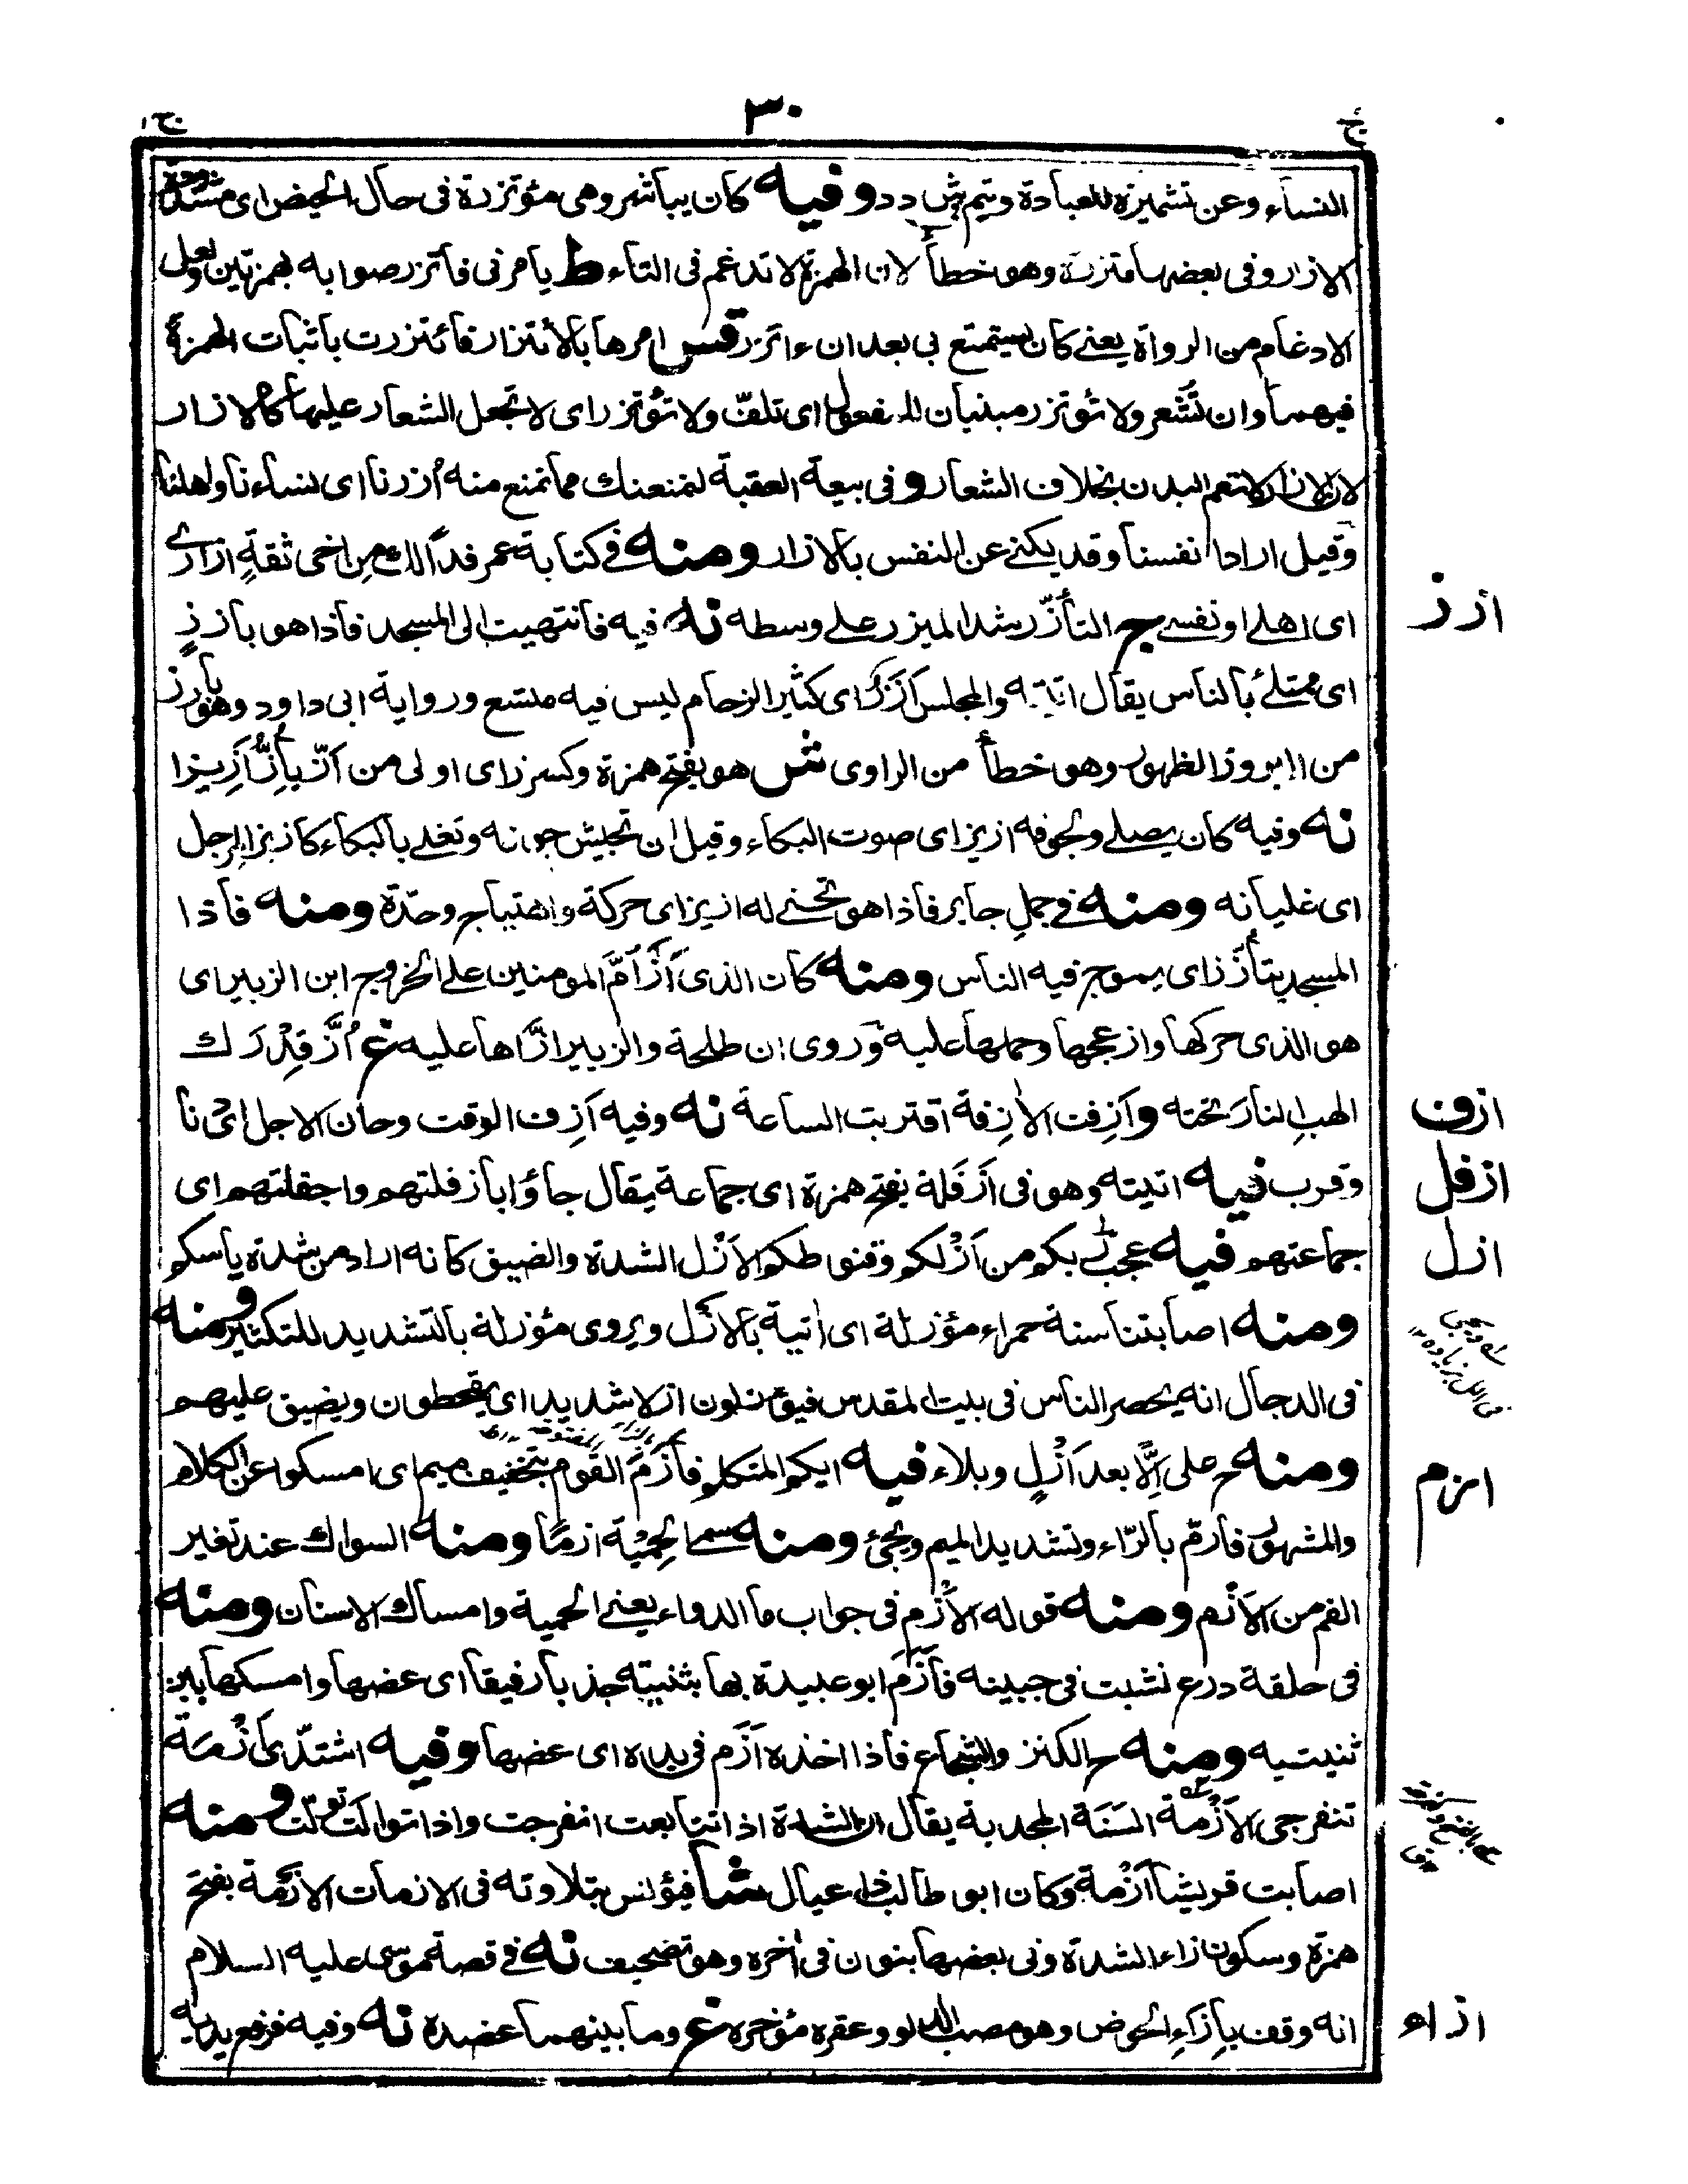 ٣٠
ج ١
النساء وعن تشميزه للعبادة ويتم ش د د وفيه كان يباشر وهى مؤتزرة فى حال الحيض اى مشدودة
الازار وفى بعضها متزرة وهو خطأ لان الهمزة لا تدغم فى التاء ط يامرنى فأتزر صوابه بهمزتين ولعل
الادغام من الرواة يعنى كان يستمتع بى بعد ان ءاتزر قس امرها بالأتزار فائتزرت باثبات الهمزة
فيهما وان تشعر ولا تؤتزر مبنيان للمفعول اى تلفّ ولا تؤتزر اى لا تجعل الشعار عليها كالازار
لان الازار لا تعم البدن بخلاف الشعار و فى بيعة العقبة لنمنعنك مما نمنع منه اُزرنا اى نساءنا واهلنا
وقيل اراد انفسنا وقد يكنى عن النفس بالازار ومنه فى كتابة عمر فدًا لك من اخى ثقةٍ ازارى
ارز
اى اهلى او نفسى ج التأزّر شد الميزر على وسطه نه فيه فانتهيت الى المسجد فاذا هو بأززٍ
اى ممتلئ بالناس يقال اتيته والمجلس اَزَزٌ اى كثير الزحام ليس فيه متسع ورواية ابى داود وهو بارز
من البروز الظهور وهو خطأ من الراوى ش هو بفتح همزة وكسر زاى اولى من ازّ يأزّ ازيزا
نه وفيه كان يصلى ولجوفه ازيز اى صوت البكاء وقيل ان تجيش جوفه وتغلى بالبكاء كازيز المرجل
اى غليانه ومنه فى جمل جابر فاذا هو تحتى له ازيز اى حركة واهتياج وحدّة ومنه فاذا
المسجد يتأزّز اى يموج فيه الناس ومنه كان الذى اَزّ اُمّ المومنين على الخروج ابن الزبير اى
هو الذى حركها وازعجها وحملها عليه وروى ان طلحة والزبير ازّاها عليه غ اُزّ قِدْرَك
ازف
الهب النار تحته و اَزِفت الاٰزفة اقتربت الساعة نه وفيه اَزِف الوقت وحان الاجل اى دنا
ازفل
وقرب فيه اتيته وهو فى اَزفَلة بفتح همزة اى جماعة يقال جاؤا بازفلتهم واجفلتهم اى
ازل
جماعتهم فيه عجب ربكم من اَزْلكم وقنوطكم الاَزْل الشدة والضيق كانه اراد من شدة ياسكم
ومنه اصابتنا سنة حمراء مؤزلة اى اٰتية بالازل ويروى مؤزلة بالتشديد للتكثير ومنه
فى الدجال انه يحصر الناس فى بيت المقدس فيؤزلون ازلا شديدا اى يقحطون ويضيق عليهم
ازم
ومنه ح على اِلّا بعد اَزْلٍ وبلاء فيه ايكم المتكلم فأزَمَ القوم بتخفيف ميم اى امسكوا عن الكلام
والمشهور فارمّ بالرّاء وتشديد الميم ويجئ ومنه سمى الحِمْيَة ازمًا ومنه السواك عند تغير
الفم من الاَزْم ومنه قوله الاَزْم فى جواب ما الدواء يعنى الحمية وامساك الاسنان ومنه
فى حلقة درع نشبت فى جبينه فأزَمَ ابو عبيدة بها بثنيته جذبا رفيقا اى عضها وامسكها بين
ثنيتيه ومنه ح الكنز والشجاع فاذا اخذه اَزَم فى يده اى عضها وفيه اشتدّى اَزْمَة
تنفرجى الاَزْمة السَنَة المجدبة يقال ان الشدة اذا تتابعت انفرجت واذا توالت تولّت ومنه
اصابت قريشا اَزْمة وكان ابو طالب ذا عيال شا فيؤنس بتلاوته فى الازمات الازْمة بفتح
همزة وسكون زاء الشدة وفى بعضها بنون فى اٰخره وهو تصحيف نه فى قصة موسى عليه السلام
ازاء
انه وقف بإزاءِ الحوض وهو مصب الدلو وعقره مؤخره غ وما بينهما عضده نه وفيه فرفع يديه